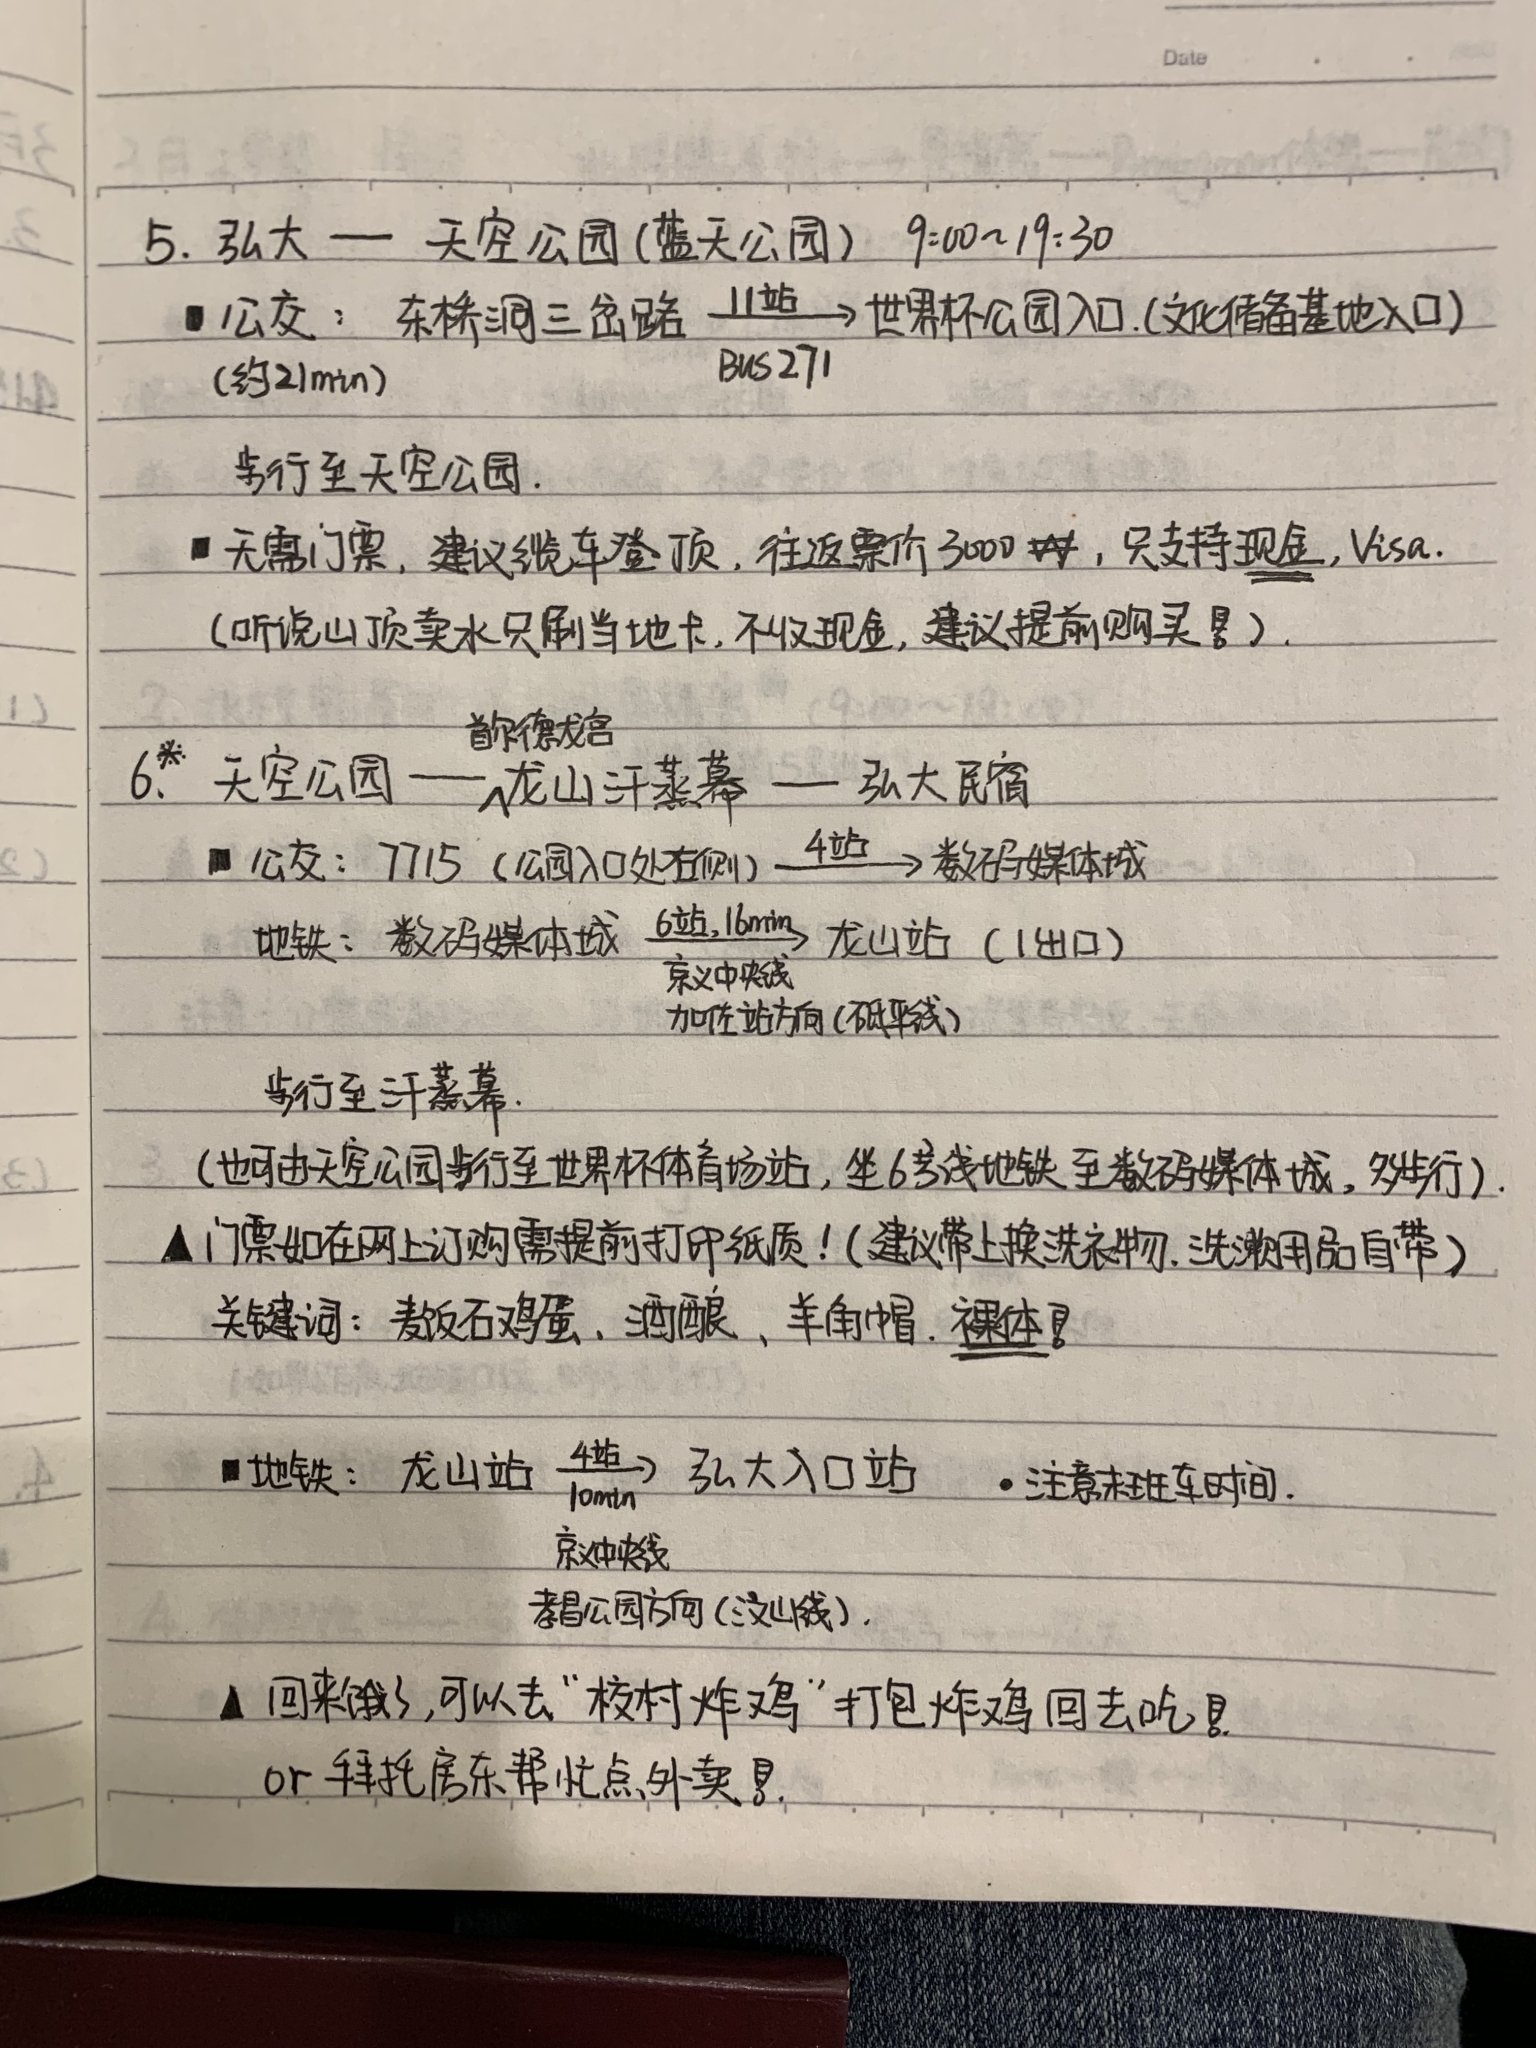 Date
5. 弘大 — 天空公园(蓝天公园) 9:00~19:30
■ 公交: 东桥洞三岔路 11站→ 世界杯公园入口.(文化储备基地入口)
(约21min) BUS 271
步行至天空公园.
■ 无需门票, 建议缆车登顶, 往返票价3000₩, 只支持现金, Visa.
(听说山顶卖水只刷当地卡, 不收现金, 建议提前购买!).
首尔德龙宫
6.* 天空公园 — ^龙山汗蒸幕 — 弘大民宿
■ 公交: 7715 (公园入口处右侧) 4站→ 数码媒体城
地铁: 数码媒体城 6站,16min→ 龙山站 (1出口)
京义中央线
加佐站方向(砥平线)
步行至汗蒸幕.
(也可由天空公园步行至世界杯体育场站, 坐6号线地铁至数码媒体城, 多步行).
▲ 门票如在网上订购需提前打印纸质!(建议带上换洗衣物.洗漱用品自带)
关键词: 麦饭石鸡蛋、酒酿、羊角帽.裸体!
■ 地铁: 龙山站 4站→ 弘大入口站 • 注意末班车时间.
10min
京义中央线
孝昌公园方向(汶山线).
▲ 回来饿了,可以去“校村炸鸡”打包炸鸡回去吃!
or 拜托房东帮忙点外卖!